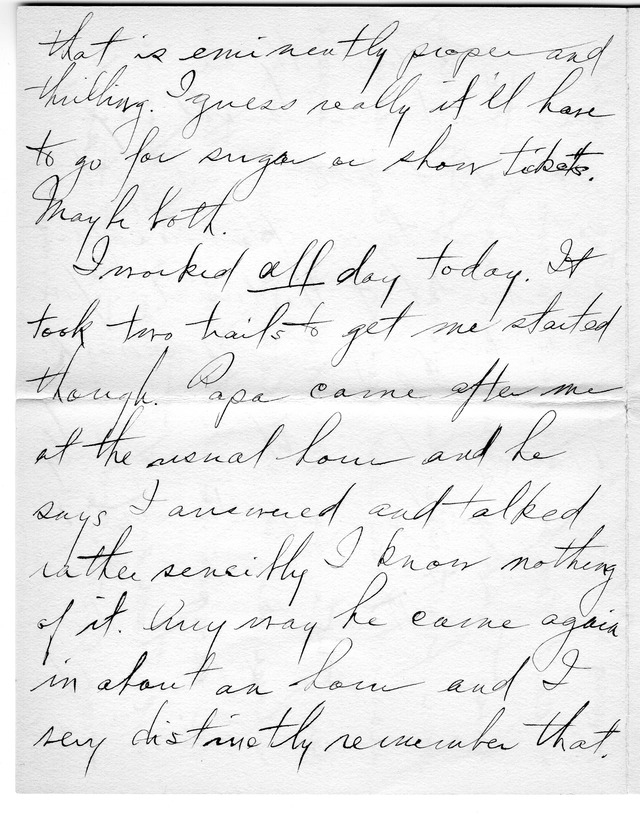 that is eminently proper and
thrilling. I guess really it'll have
to go for sugar or show tickets.
Maybe both.
I worked all day today. It
took two trails to get me started
though. Papa came after me
at the usual hour and he
says I answered and talked
rather sensibly I know nothing
of it. Any way he came again
in about an hour and I
very distinctly remember that.